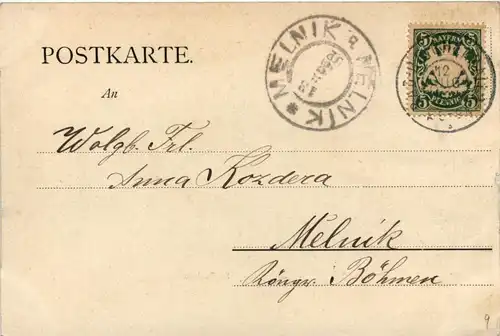 POSTKARTE.
MELNIK * MELNIK *
BAYERN
5 5
5 PFENNIG 5
An
Wolgb. Frl.
Anna Kozdera
Melnik
Königr. Böhmen
9